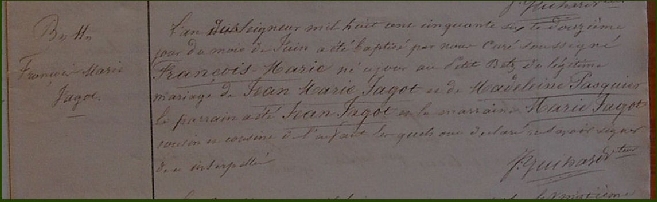 J. Guihard
Bm 44
François Marie
Jagot.
L'an du seigneur mil huit cent cinquante six le douzième
jour du mois de Juin a été baptisé par nous Curé soussigné
François Marie né ce jour au Petit Bot, du légitime
mariage de Jean Marie Jagot et de Madeleine Pasquier
Le parrain a été Jean Jagot et la marraine Marie Jagot
cousin et cousine de l'enfant lesquels ont déclaré ne savoir signer
de ce interpellés
J. Guihard